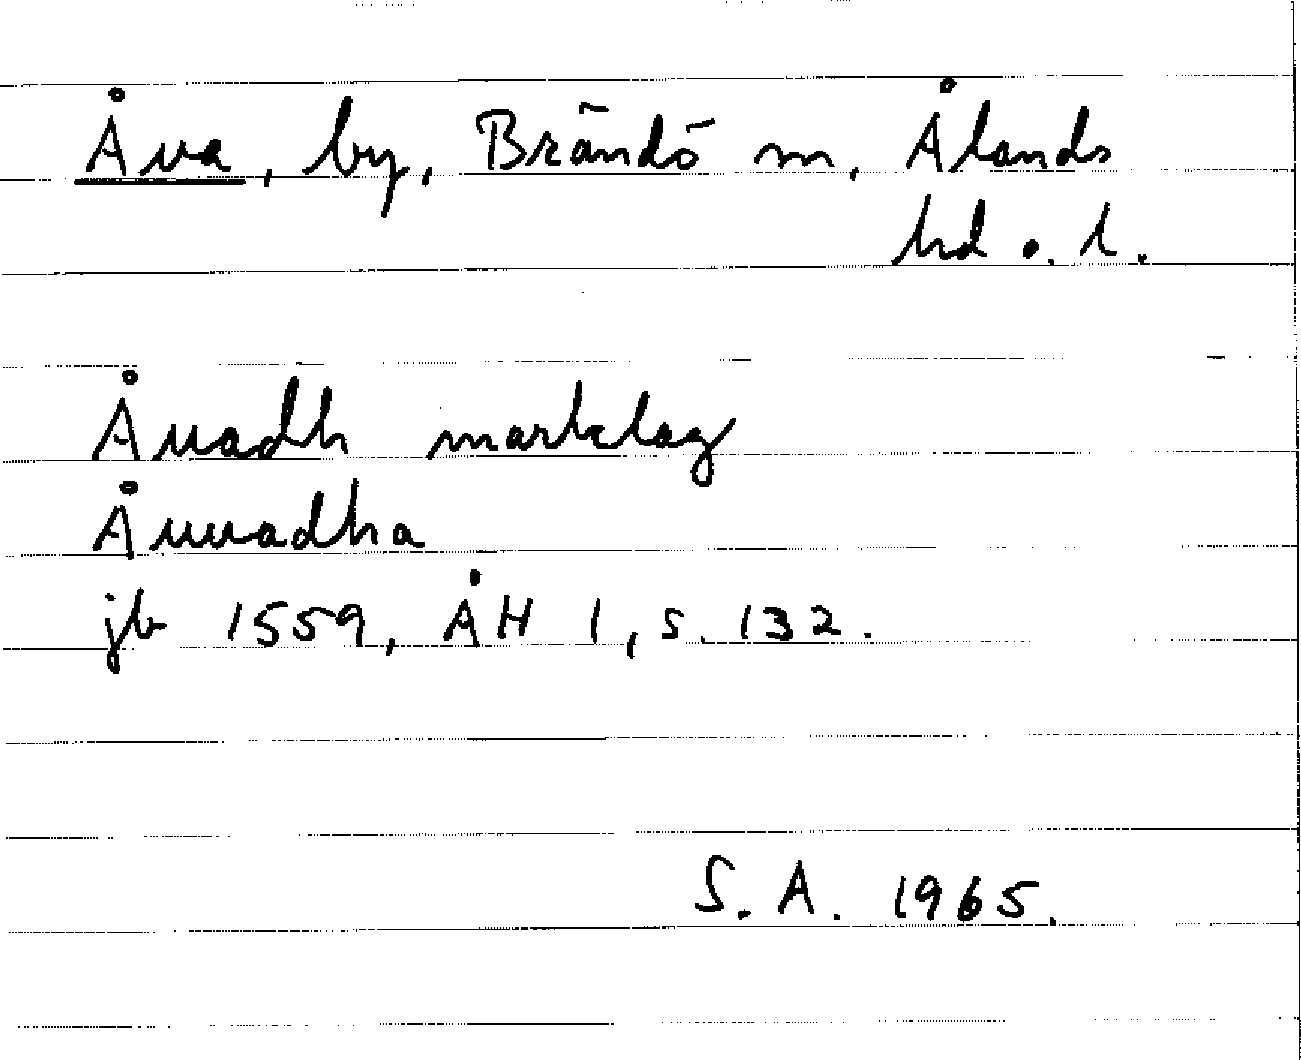 Åva, by, Brändö m, Ålands
hd o. l.
Åuadh marklag
Åuuadha
jb 1559, ÅH 1, s. 132.
S. A. 1965.